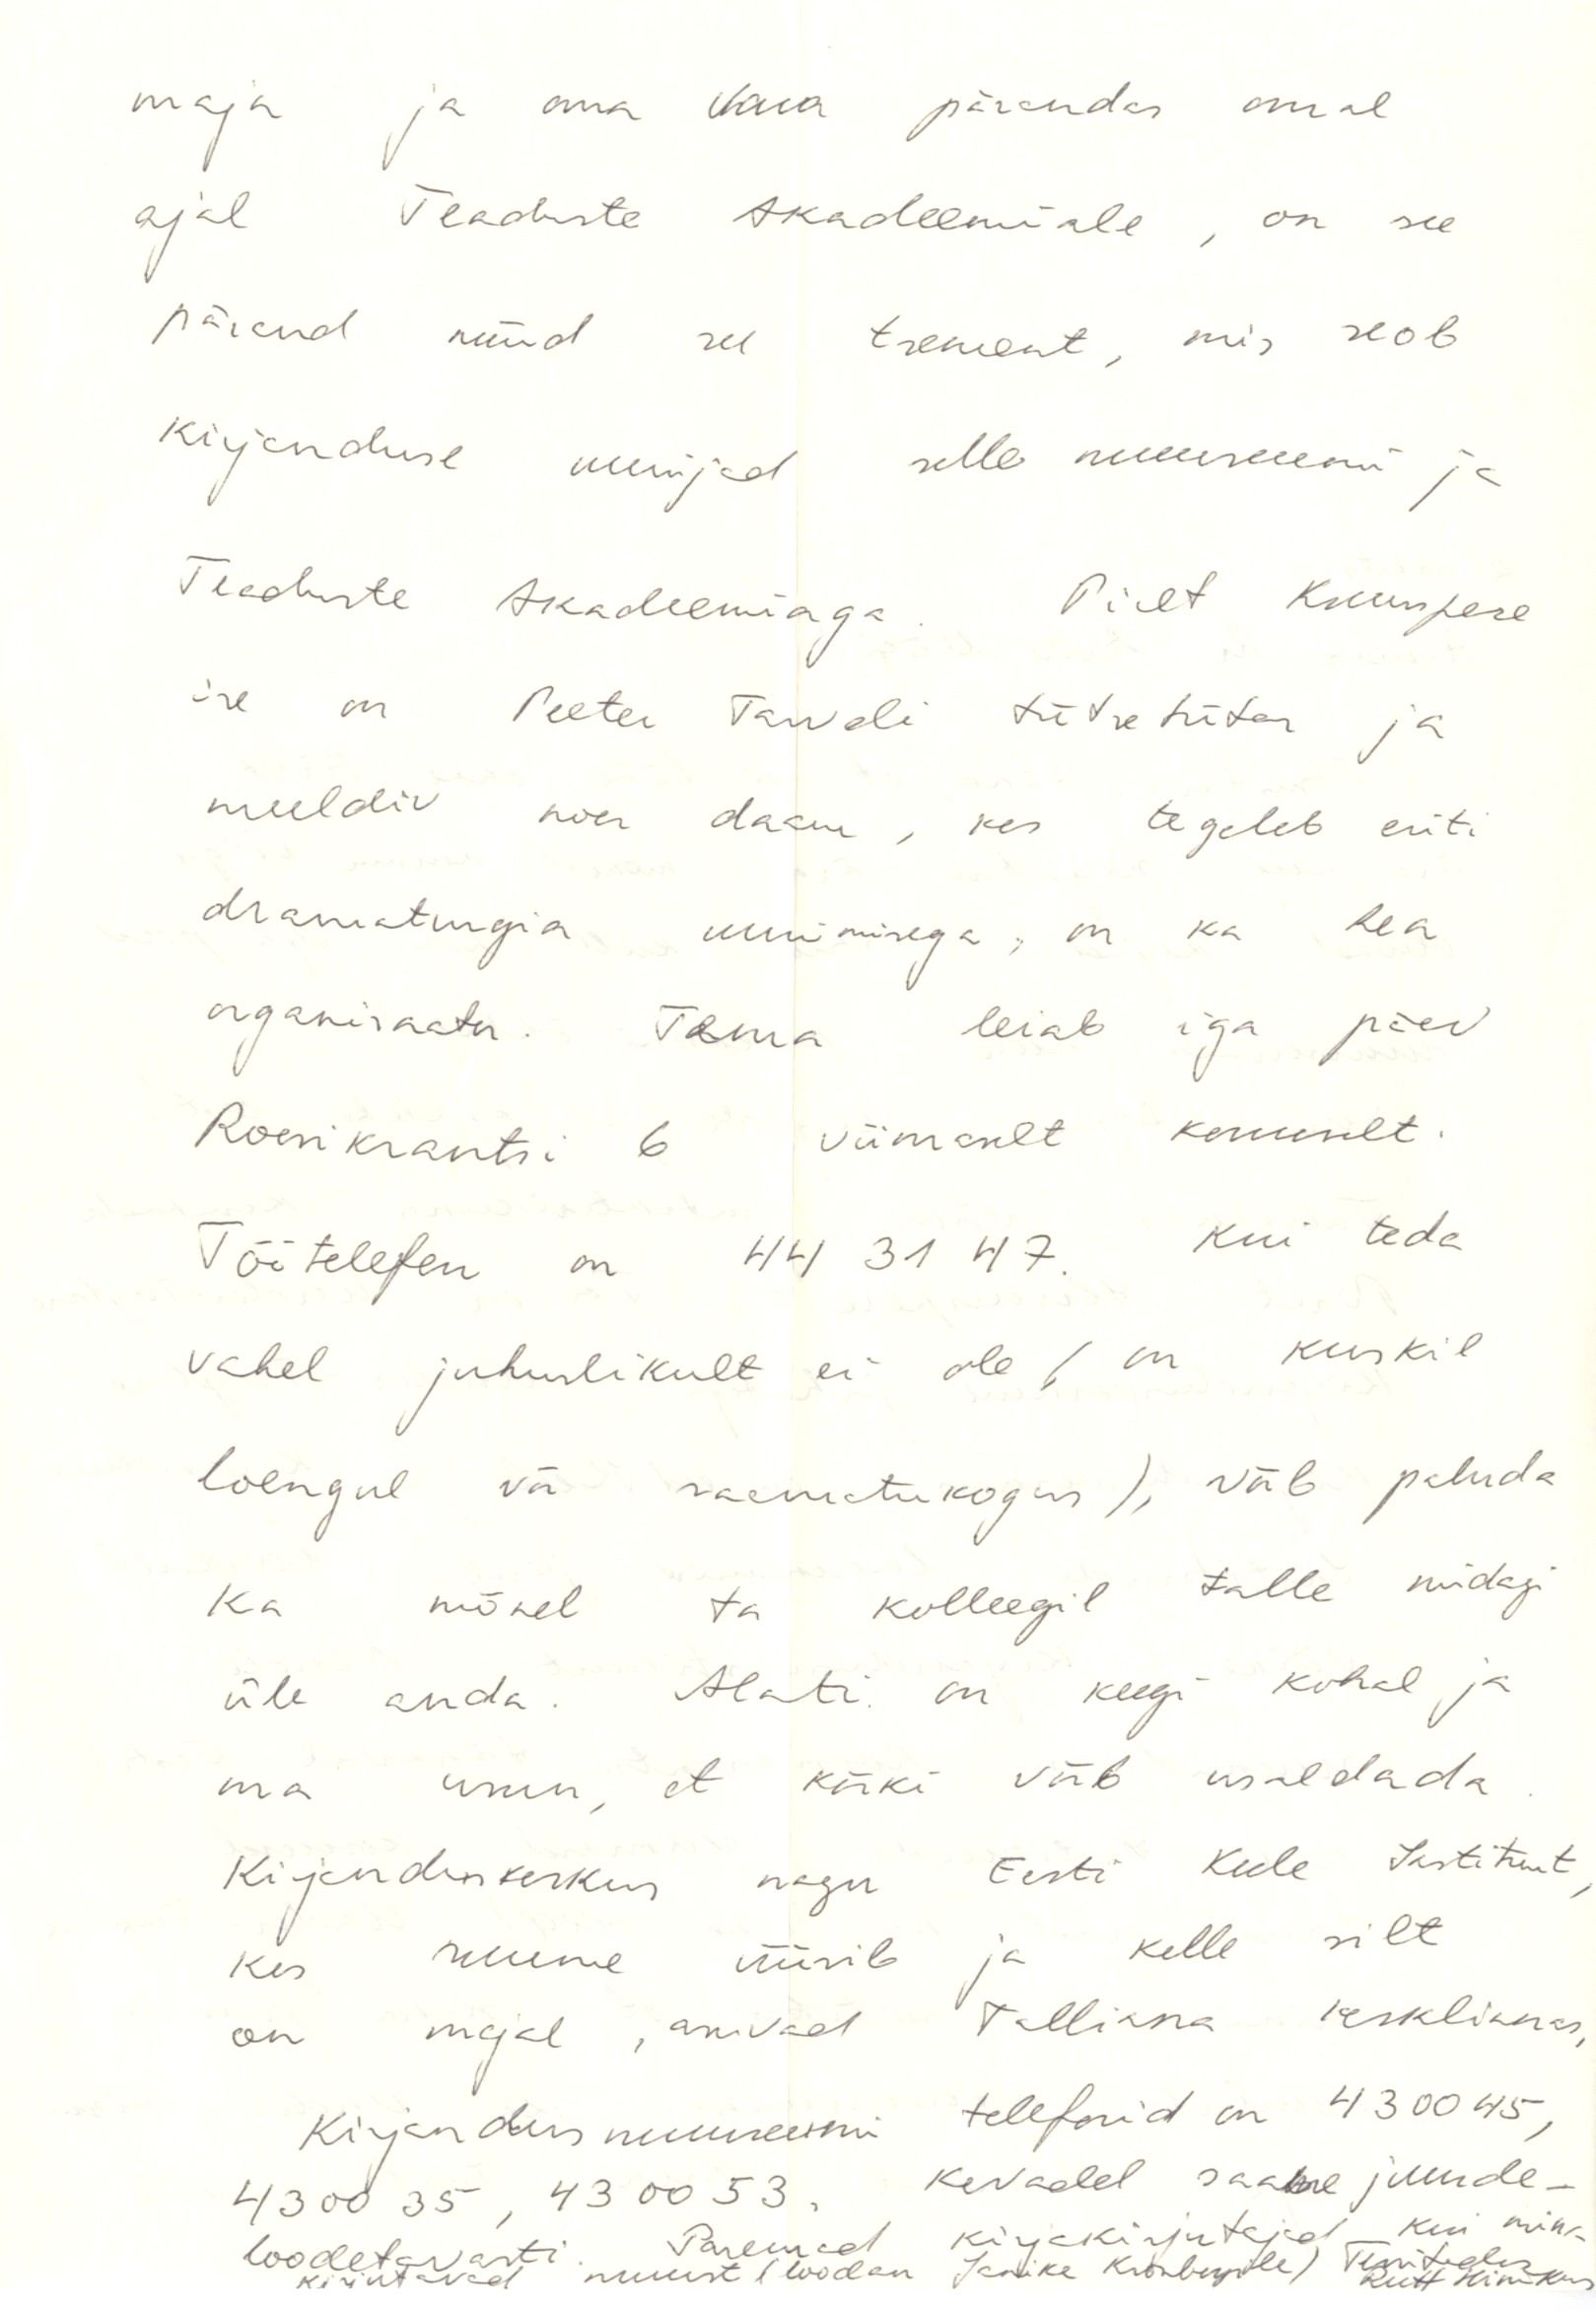 maja ja oma vara pärandas omal
ajal Teaduste Akadeemiale, on see
pärand nüüd see tsement, mis seob
kirjanduse uurijad selle muuseumi ja
Teaduste Akadeemiaga. Piret Kruuspere
ise on Peeter Tarveli tütretütar ja
meeldiv noor daam, kes tegeleb eriti
dramaturgia uurimisega, on ka hea
organisaator. Tema leiab iga päev
Roosikrantsi 6 viimaselt korruselt.
Töötelefon on 44 31 47. Kui teda
vahel juhuslikult ei ole (on kuskil
loengul või raamatukogus), võib paluda
ka mõnel ta kolleegil talle midagi
üle anda. Alati on keegi kohal ja
ma usun, et kõiki võib usaldada.
Kirjanduskeskus nagu Eesti Keele Instituut,
kes ruume üürib ja kelle silt
on majal, asuvad Tallinna kesklinnas,
Kirjandusmuuseumi telefonid on 430045,
430035, 430053. Kevadel saame juurde-
loodetavasti. Paremad kirjakirjutajad kui mina
kirjutavad muust (loodan Janika Kronbergile) Tervitades
Rutt Hinrikus